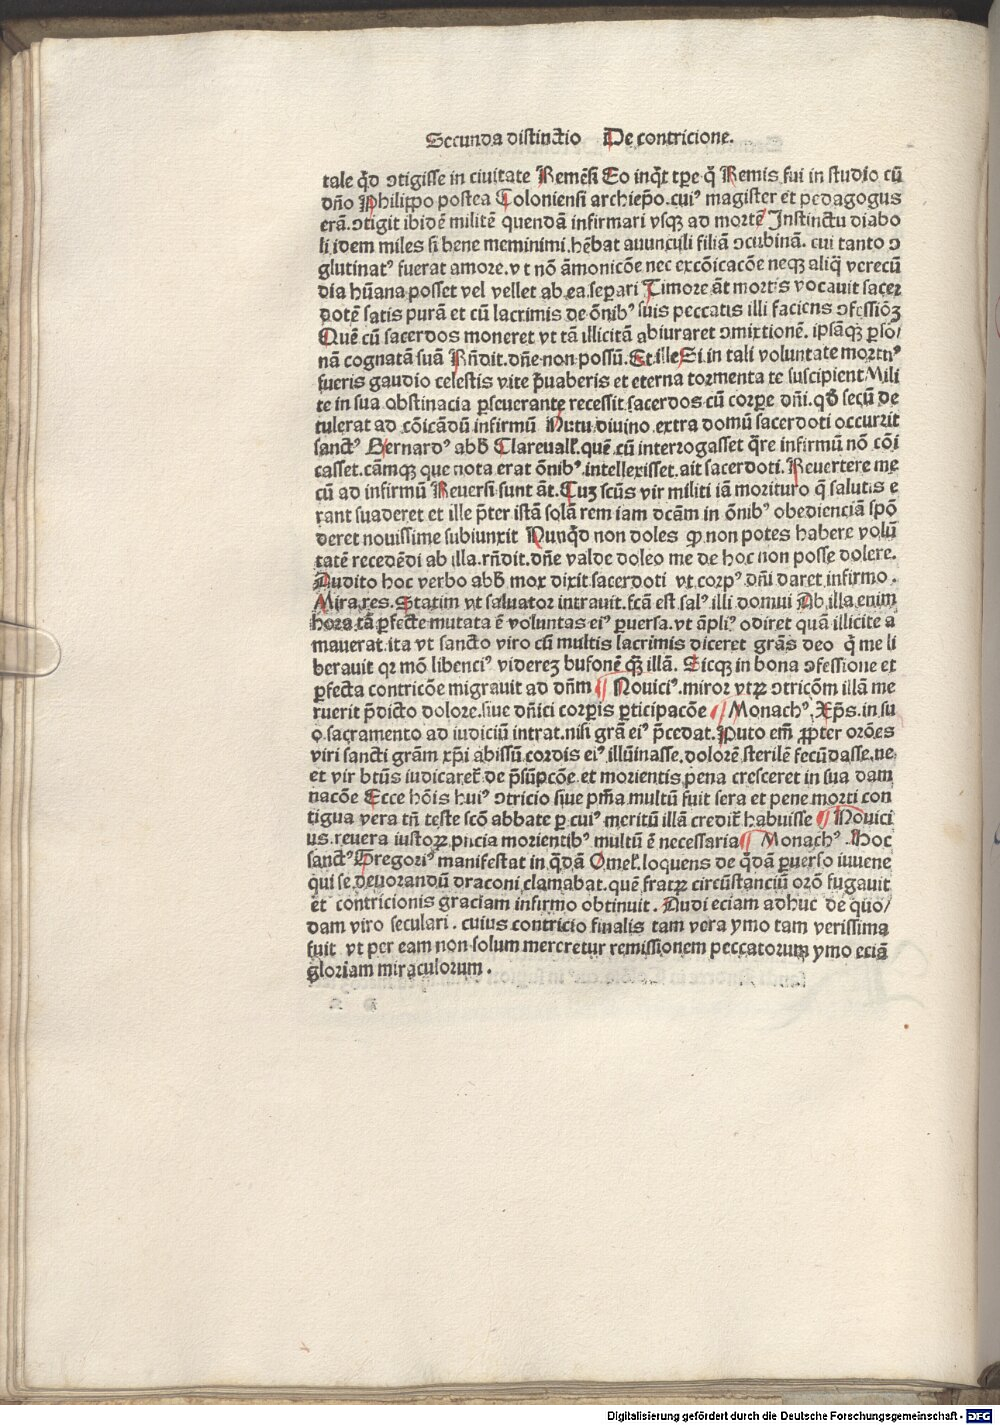 Secunda distinctio De contricione.
tale qd̄ ↄtigisse in ciuitate Remēsi Eo inqͥt tꝑe qͣ Remis fui in studio cū
dn̄o Philippo postea Coloniensi archiepō. cuiꝰ magister et pedagogus
erā. ↄtigit ibidē militē quendā infirmari vsqꝫ ad mortē Instinctu diabo
li idem miles si bene memini mi. hēbat auunculi filiā ↄcubinā. cui tanto ↄ
glutinatꝰ fuerat amore. vt nō āmonicōe nec excōicacōe neqꝫ aliqͣ verecū
dia hūana posset vel vellet ab ea seꝑari Timore āt mortis vocauit sacer
dotē satis purā et cū lacrimis de ōnibꝰ suis peccatis illi faciens ↄfessiōꝫ
Quē cū sacerdos moneret vt tā illicitā abiuraret ↄmixtionē. ipsāqꝫ ꝑso/
nā cognatā suā Rn̄dit. dn̄e non possū. Et ille Si in tali voluntate mortuꝰ
fueris gaudio celestis vite p̄uaberis et eterna tormenta te suscipient Mili
te in sua obstinacia ꝑseuerante recessit sacerdos cū corꝑe dn̄i. qd̄ secū de
tulerat ad cōicādū infirmū Nutu diuino extra domū sacerdoti occurrit
sanctꝰ Bernardꝰ abb̄ Clareuall. quē cū interrogasset qͣre infirmū nō cōi
casset. cāmqꝫ que nota erat ōnibꝰ. intellexisset. ait sacerdoti. Reuertere me
cū ad infirmū Reuersi sunt āt. Cuꝫ scūs vir militi iā morituro qͣ salutis e
rant suaderet et ille p̄ter istā solā rem iam dcām in ōnibꝰ obedienciā spō
deret nouissime subiunxit Nunqͥd non doles ꝙ non potes habere volū
tatē recedēdi ab illa. rn̄dit. dn̄e valde doleo me de hoc non posse dolere.
Audito hoc verbo abb̄ mox dixit sacerdoti vt corpꝰ dn̄i daret infirmo.
Mira res. Statim vt saluator intrauit. fcā est salꝰ illi domui Ab illa enim
hora tā ꝑfecte mutata ē voluntas eiꝰ ꝑuersa. vt āpliꝰ odiret quā illicite a
mauerat. ita vt sancto viro cū multis lacrimis diceret grās deo qͥ me li
berauit qꝛ mō libenciꝰ viderez bufonē qͣꝫ illā. Sicqꝫ in bona ↄfessione et
ꝑfecta contricōe migrauit ad dn̄m ¶ Nouiciꝰ. miror vtꝝ ↄtricōm illā me
ruerit p̄dicto dolore. siue dn̄ici corꝑis ꝑticipacōe ¶ Monachꝰ. Xp̄s. in su
o sacramento ad iudiciū intrat. nisi grā eiꝰ p̄cedat. Puto em̄ ꝓpter orōes
viri sancti grām xp̄i abissū cordis eiꝰ illūinasse. dolorē sterilē fecūdasse. ne
et vir btūs iudicaret̄ de p̄sūpcōe. et morientis pena cresceret in sua dam
nacōe Ecce hōis huiꝰ ↄtricio siue pm̄a multū fuit sera et pene morti con
tigua vera tn̄ teste scō abbate ꝑ cuiꝰ meritū illā credit̄ habuisse ¶ Nouici
us. reuera iustoꝝ pn̄cia morientibꝰ multū ē necessaria ¶ Monachꝰ. Hoc
sanctꝰ Gregoriꝰ manifestat in qͣdā Omel. loquens de qͦdā ꝑuerso iuuene
qui se deuorandū draconi clamabat. quē fratꝝ circūstanciū orō fugauit
et contricionis graciam infirmo obtinuit. Audi eciam adhuc de quo/
dam viro seculari. cuius contricio finalis tam vera ymo tam verissima
fuit vt per eam non solum mereretur remissionem peccatorum ymo eciā
gloriam miraculorum.
Digitalisierung gefördert durch die Deutsche Forschungsgemeinschaft - DFG